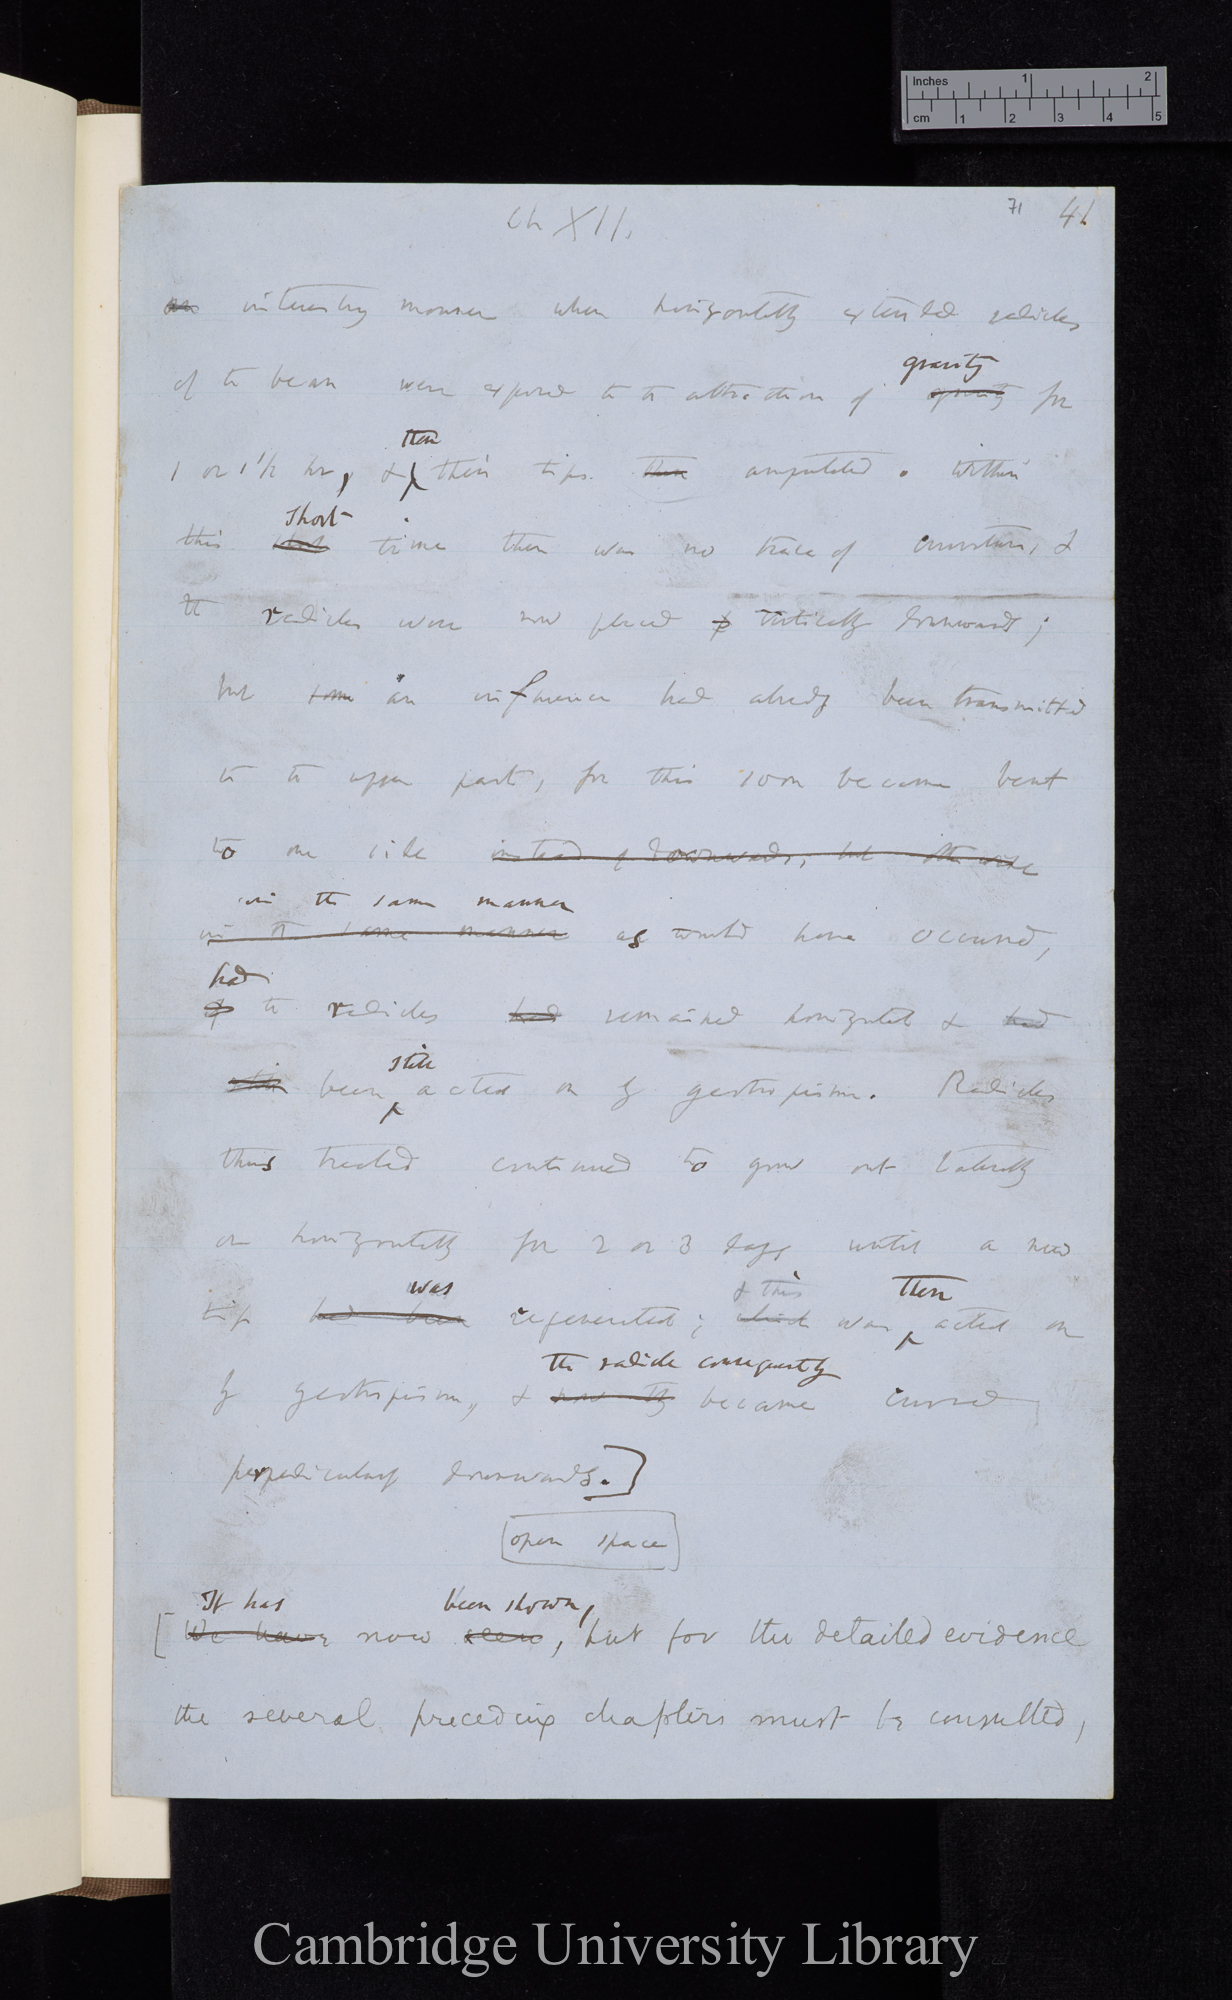 Inches 1 2
cm 1 2 3 4 5
Ch XII.
71 41
an interesting manner when horizontally extended radicles
gravity
of the bean were exposed to the attraction of gravity for
then
1 or 1 1/2 hr, & their tips then amputated. Within
short
this short time there was no trace of curvature, &
the radicles were now placed vertically downwards;
but some an influence had already been transmitted
to the upper part, for this soon became bent
to one side instead of downwards, but otherwise
in the same manner
in the same manner as would have occurred,
had
if the radicles had remained horizontal & had
still
still been acted on by geotropism. Radicles
thus treated continued to grow out laterally
or horizontally for 2 or 3 days until a new
was & this then
tip had been regenerated; which was acted on
the radicle consequently
by geotropism, & became curved
perpendicularly downwards.]
open space
It has been shown,
[We have now seen, but for the detailed evidence
the several preceding chapters must be consulted,
Cambridge University Library